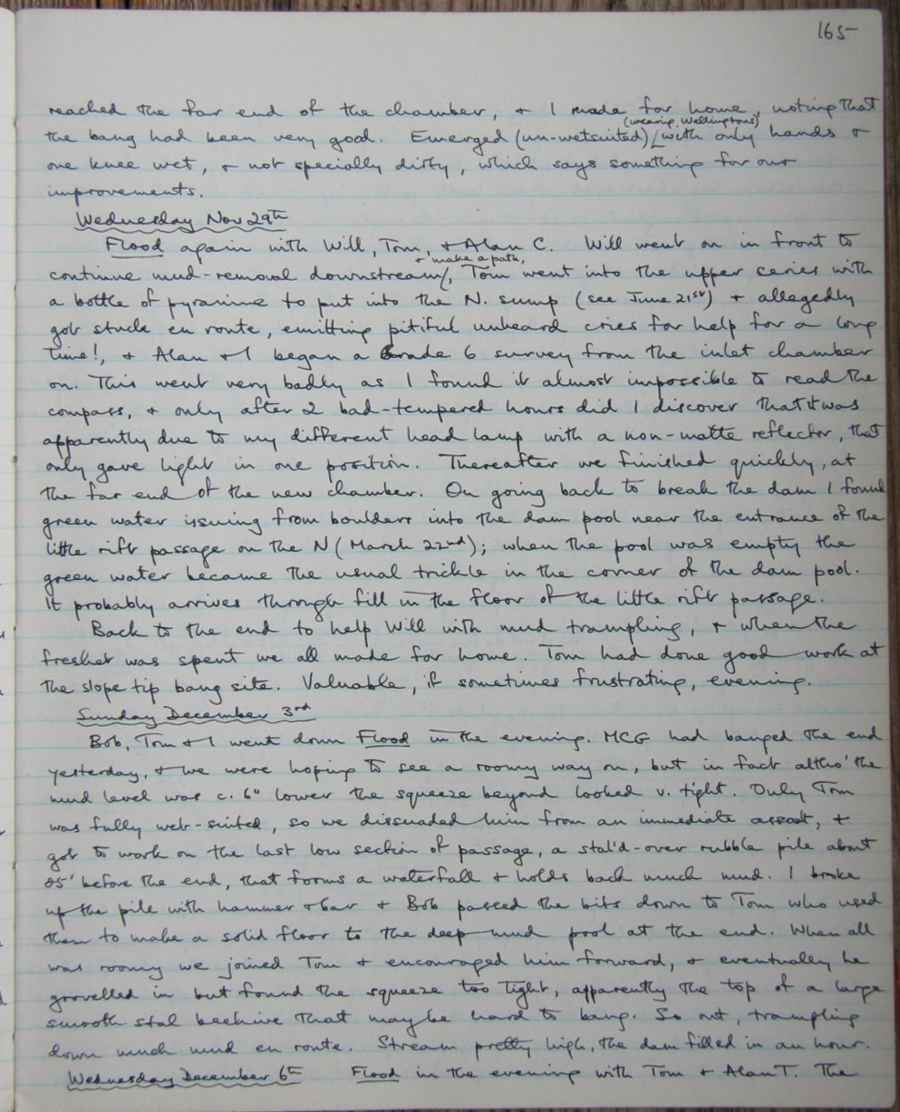 165
reached the far end of the chamber, + I made for home, noting that
the bang had been very good. Emerged (un-wetsuited) (wearing Wellingtons) with only hands +
one knee wet, + not specially dirty, which says something for our
improvements.
Wednesday Nov 29th
Flood again with Will, Tom, + Alan C. Will went on in front to
continue mud-removal downstream + make a path, Tom went into the upper series with
a bottle of pyranine to put into the N. sump (see June 21st) + allegedly
got stuck en route, emitting pitiful unheard cries for help for a long
time!, + Alan + I began a Grade 6 survey from the inlet chamber
on. This went very badly as I found it almost impossible to read the
compass, + only after 2 bad-tempered hours did I discover that it was
apparently due to my different head lamp with a non-matte reflector, that
only gave light in one position. Thereafter we finished quickly, at
the far end of the new chamber. On going back to break the dam I found
green water issuing from boulders into the dam pool near the entrance of the
little rift passage on the N (March 22nd); when the pool was empty the
green water became the usual trickle in the corner of the dam pool.
It probably arrives through fill in the floor of the little rift passage.
Back to the end to help Will with mud trampling, + when the
freshet was spent we all made for home. Tom had done good work at
the slope tip bang site. Valuable, if sometimes frustrating, evening.
Sunday December 3rd
Bob, Tom + I went down Flood in the evening. MCG had banged the end
yesterday, + we were hoping to see a roomy way on, but in fact altho' the
mud level was c. 6" lower the squeeze beyond looked v. tight. Only Tom
was fully wet-suited, so we dissuaded him from an immediate assault, +
got to work on the last low section of passage, a stal'd-over rubble pile about
25' before the end, that forms a waterfall + holds back much mud. I broke
up the pile with hammer + bar + Bob passed the bits down to Tom who used
them to make a solid floor to the deep mud pool at the end. When all
was roomy we joined Tom + encouraged him forward, + eventually he
grovelled in but found the squeeze too tight, apparently the top of a large
smooth stal beehive that may be hard to bang. So out, trampling
down much mud en route. Stream pretty high, the dam filled in an hour.
Wednesday December 6th Flood in the evening with Tom + Alan T. The